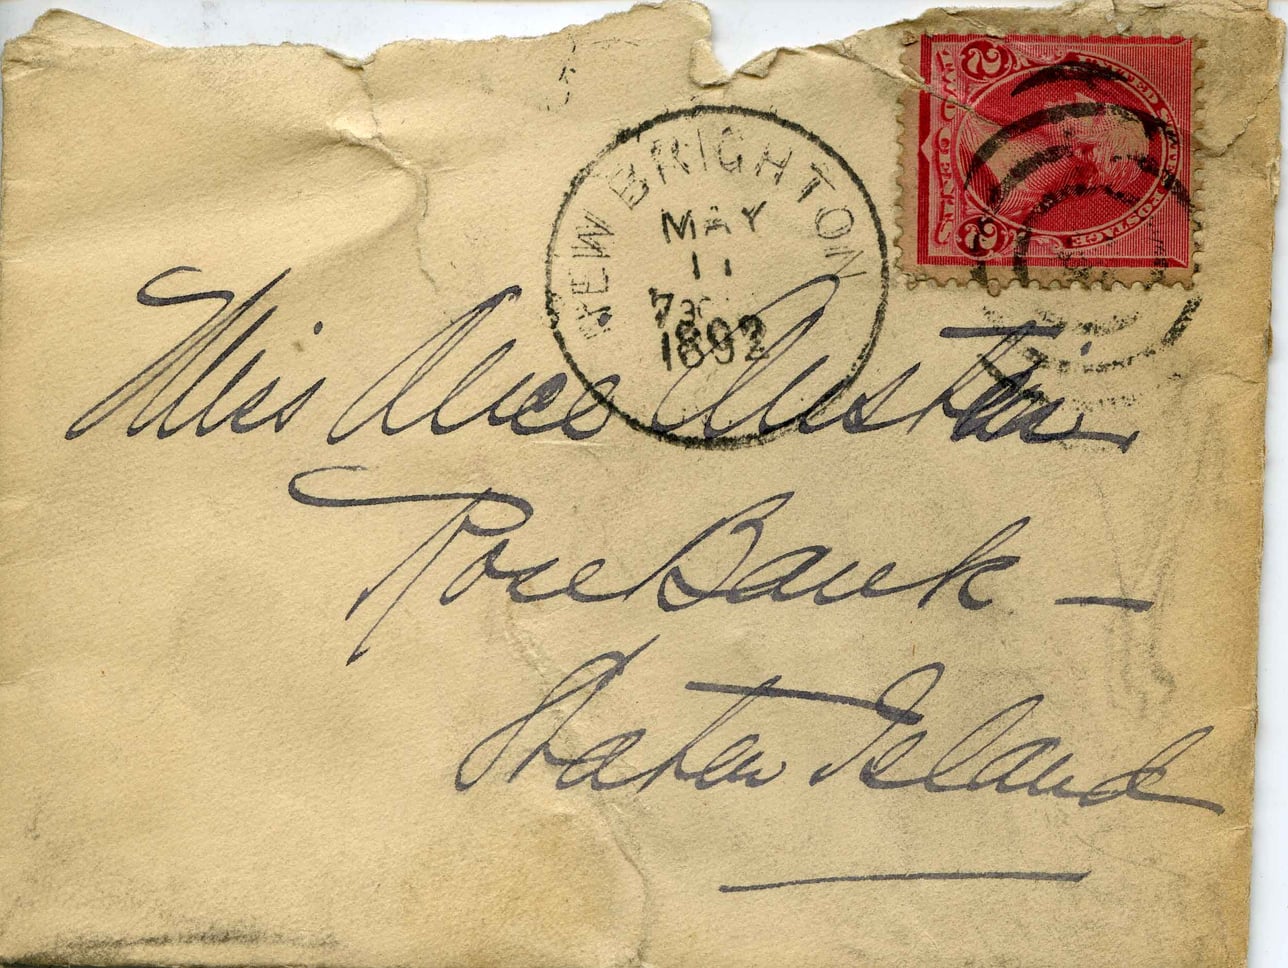 NEW BRIGHTON
MAY
11
730
1892
2 UNITED STATES POSTAGE
TWO CENTS 2
Miss Alice Austin.
Rose Bank —
Staten Island